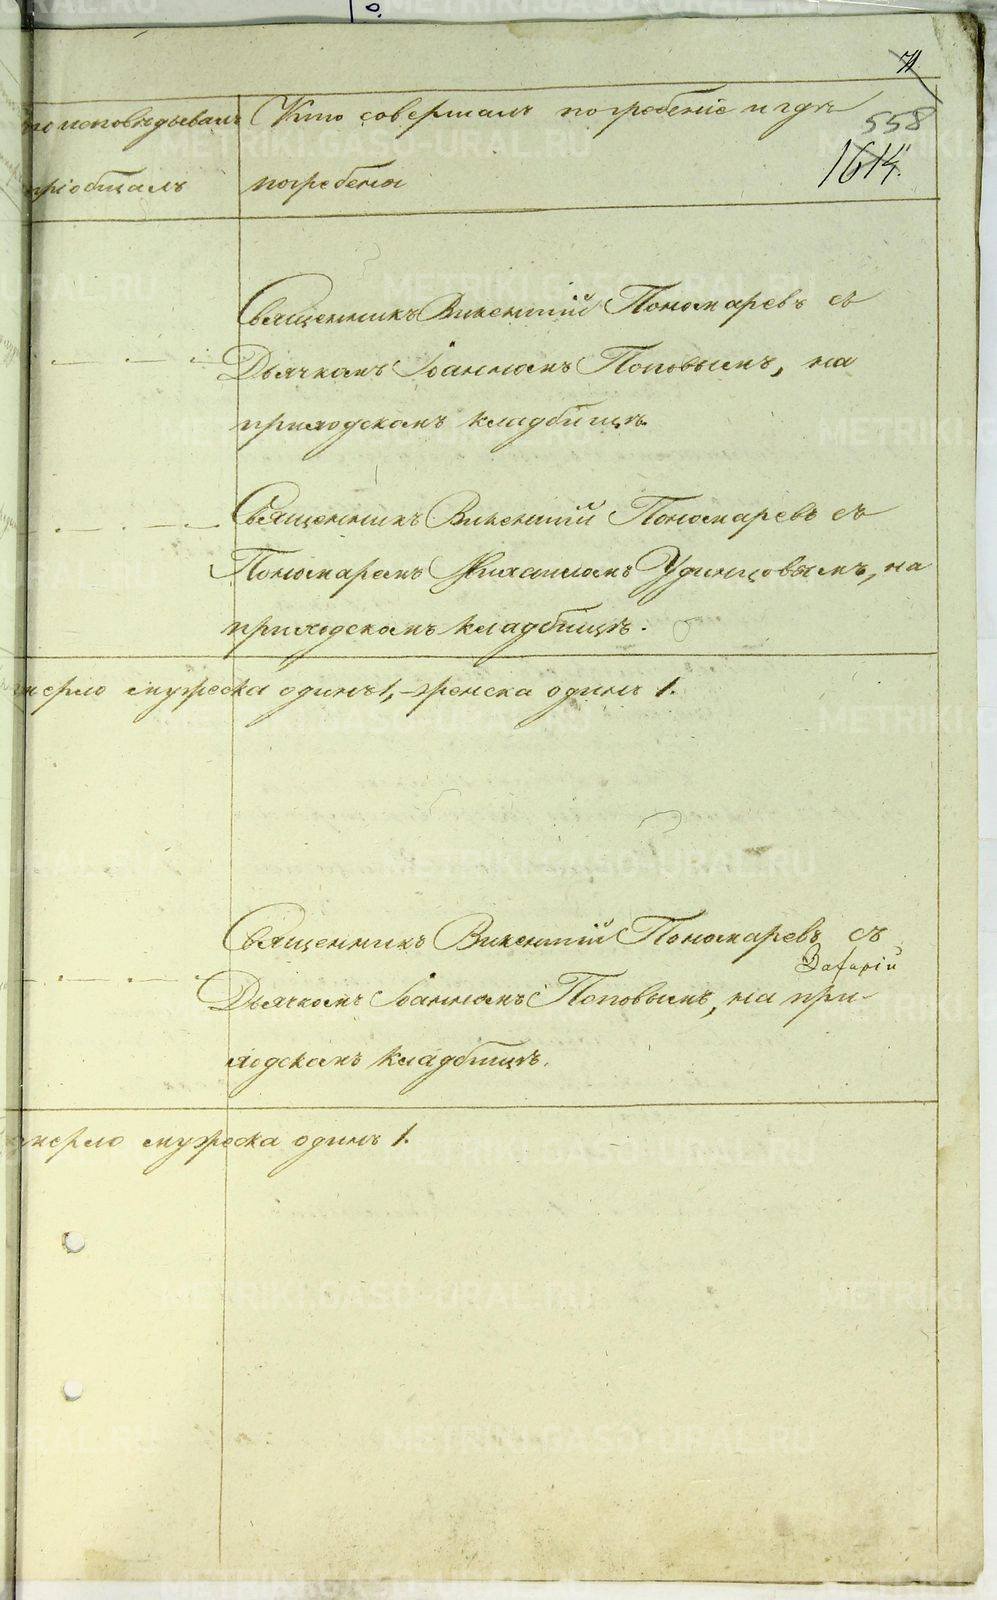 71
558
1614
то исповѣдывалъ Кто совершалъ погребеніе и гдѣ
пріобщалъ погребены
Священникъ Викентій Пономаревъ съ
Дьячкомъ Іоанномъ Поповымъ, на
приходскомъ кладбищѣ.
Священникъ Викентій Пономаревъ съ
Пономаремъ Михаиломъ Удинцовымъ, на
приходскомъ кладбищѣ.
мерло мужеска одинъ 1, женска одинъ 1.
Священникъ Викентій Пономаревъ съ
Дьячкомъ Іоанномъ Поповымъ, на при-
ходскомъ кладбищѣ.
мерло мужеска одинъ 1.
METRIKI.GASO-URAL.RU